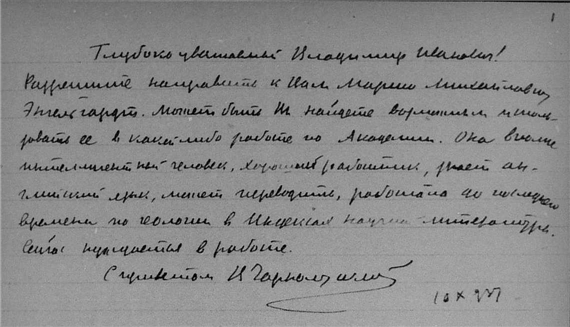 1
Глубокоуважаемый Владимир Иванович!
Разрешите направить к Вам Марию Михайловну
Энгельгардт. Может быть Вы найдете возможным исполь-
зовать ее в какой либо работе по Академии. Она вполне
интеллигентный человек, хороший работник, знает ан-
глийский язык, может переводить, работала до последнего
времени по геологии в Индексах научной литературы.
Сейчас нуждается в работе.
С приветом
10 X 937